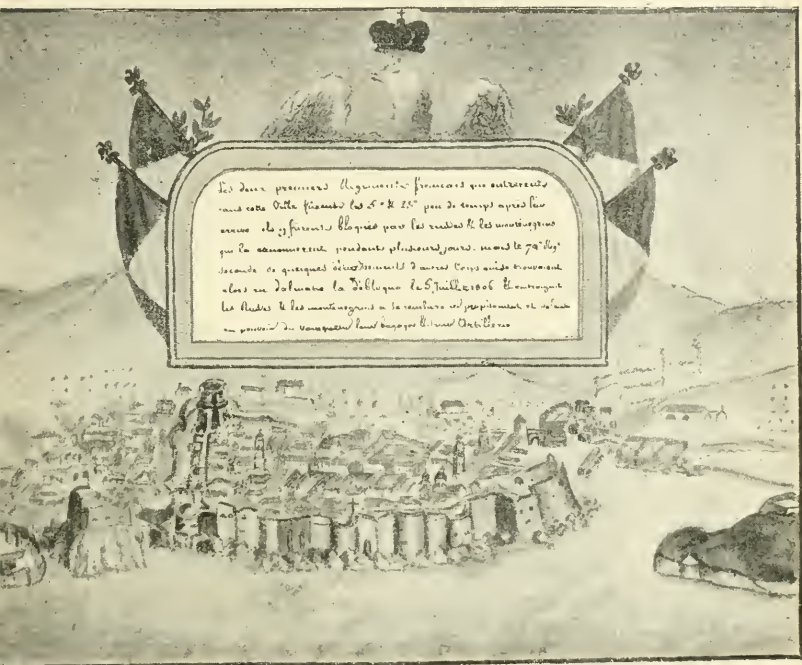 Les deux premiers Régiments français qui entrèrent
dans cette Ville furent les 5e & 23e peu de temps après leur
arrivé ils y furent bloqués par les russes & les monténégrins
qui la canonnerent pendant plusieurs jours. mais le 79e Regt
secondé de quelques détachements d'autres Corps qui se trouvaient
alors en dalmatie la débloqua le 5 Juillet 1806 & contraignit
les Russes & les monténégrins a se rembarquer précipitament et
au pouvoir du vainqueur leurs bagages & leur Artillerie